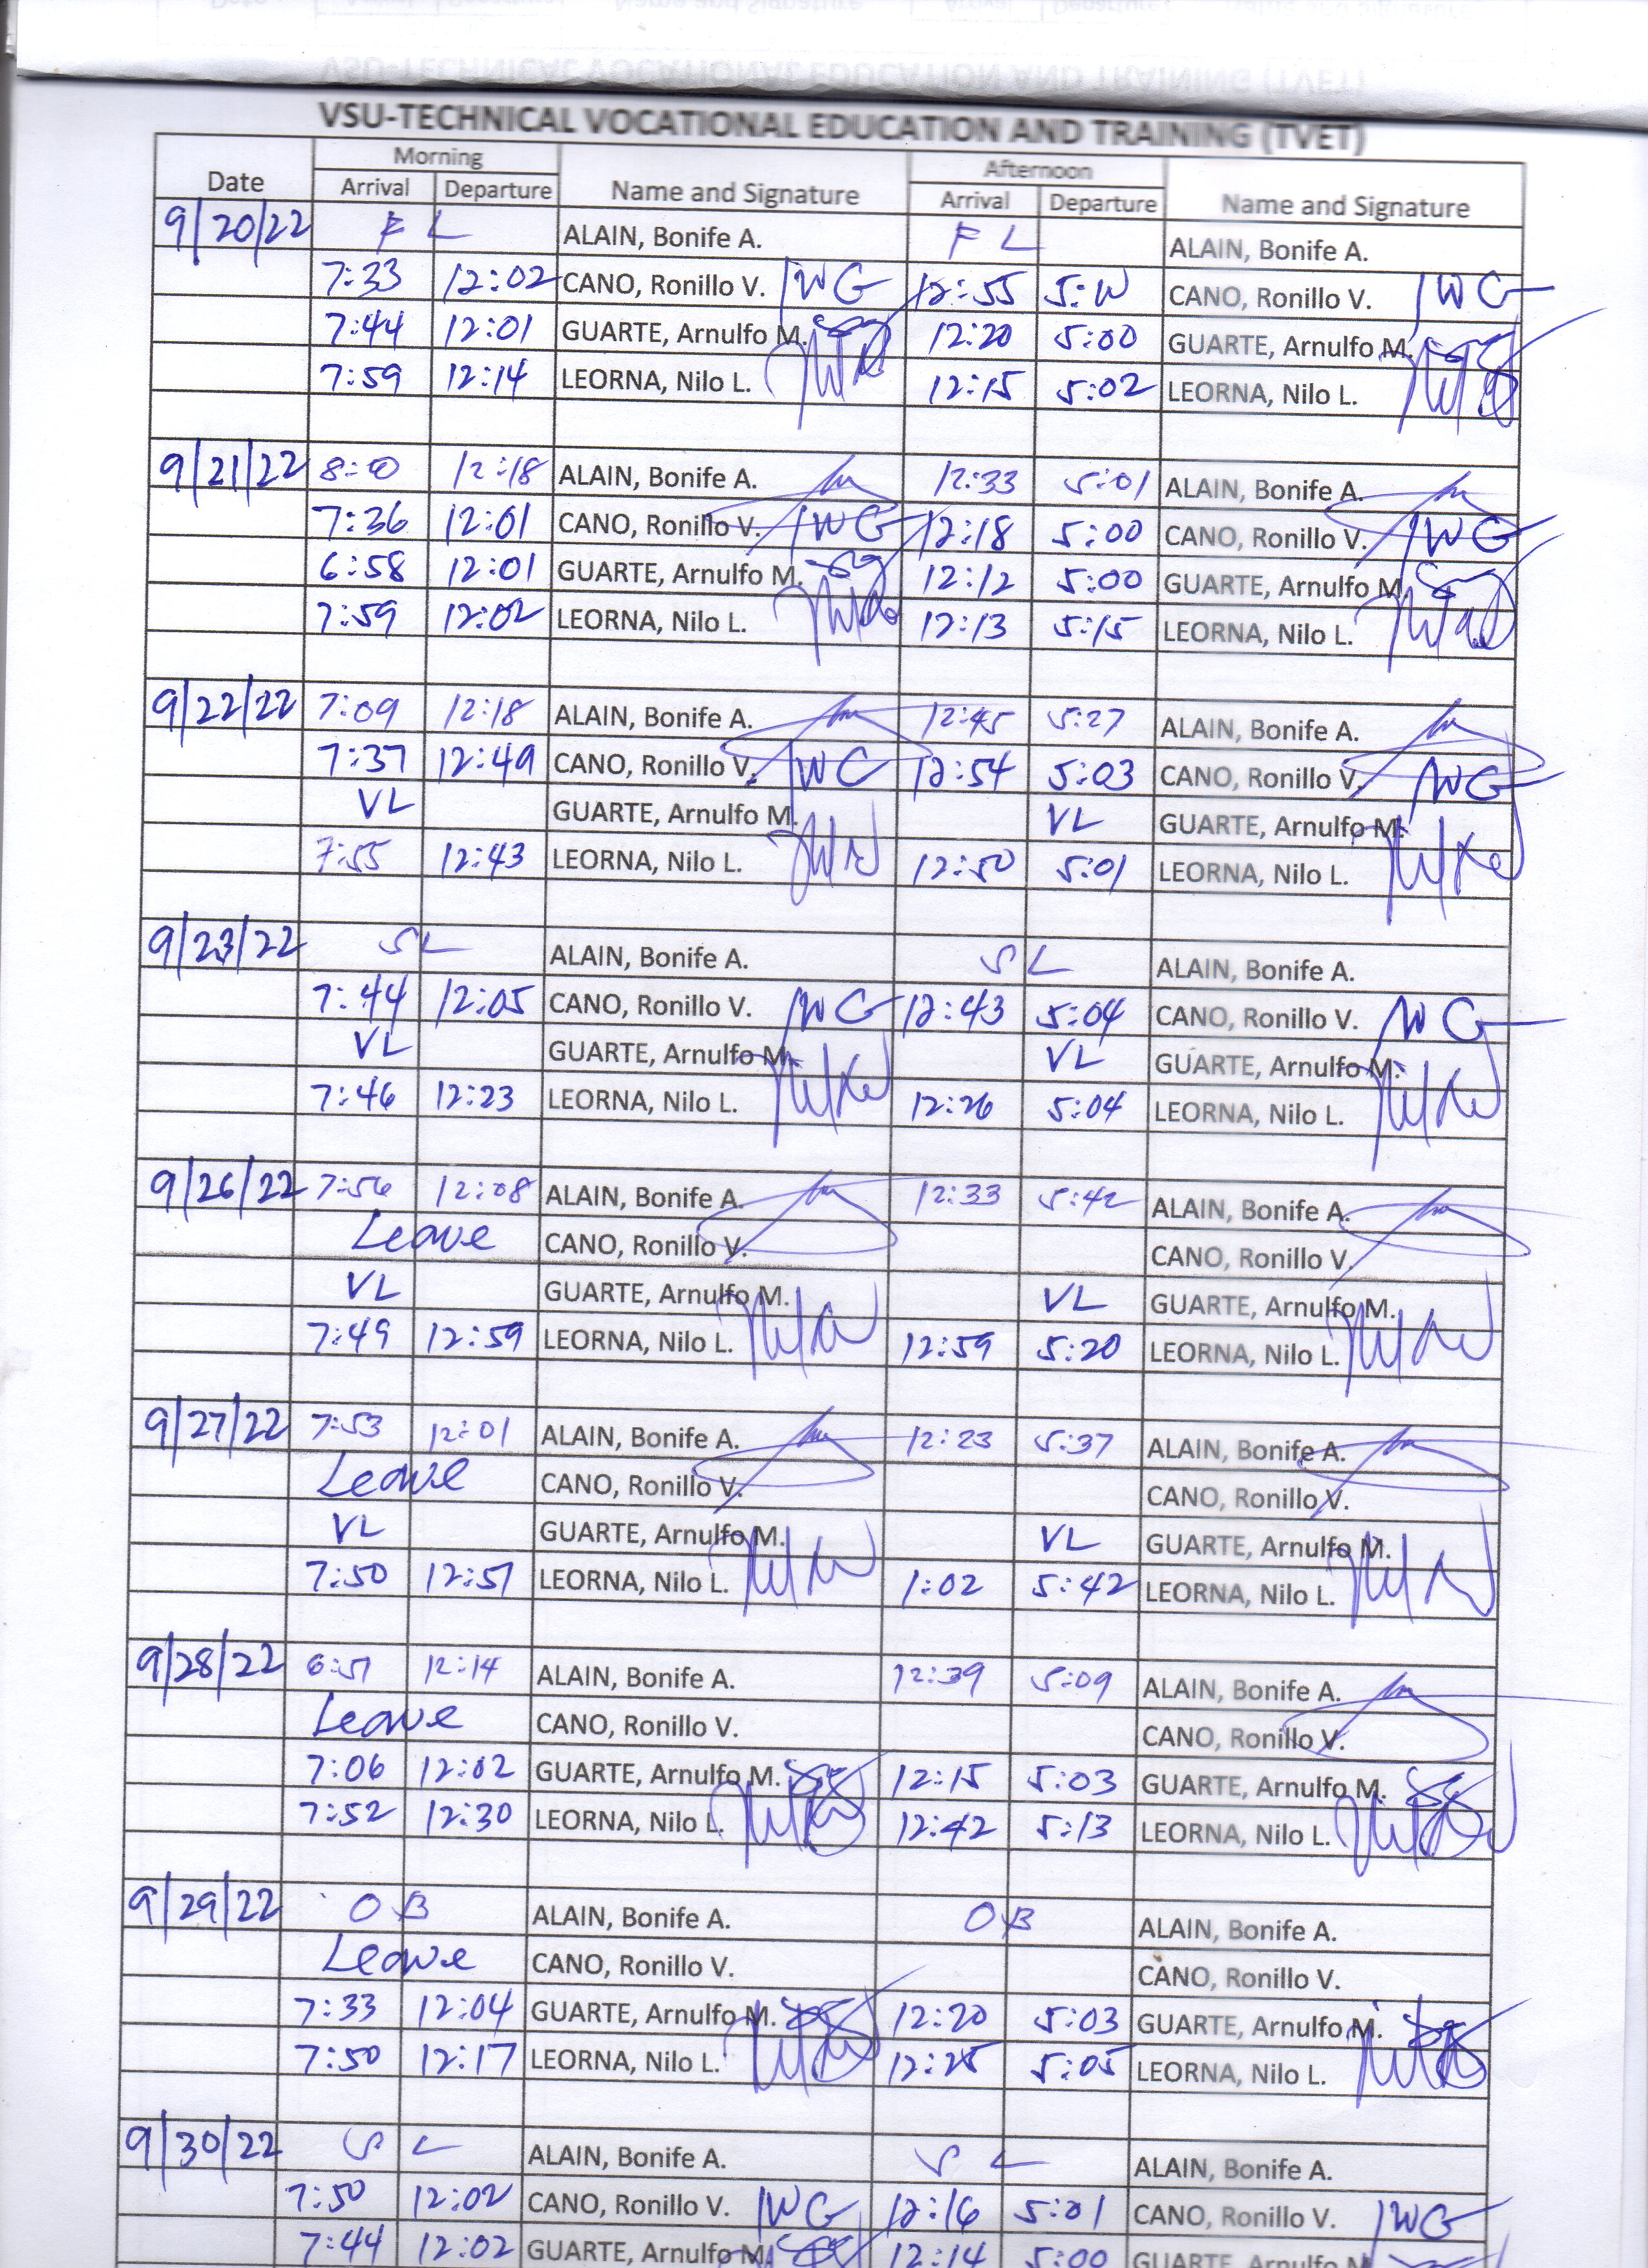 VSU-TECHNICAL VOCATIONAL EDUCATION AND TRAINING (TVET)
VSU-TECHNICAL VOCATIONAL EDUCATION AND TRAINING (TVET)
Morning Afternoon
Date Arrival Departure Name and Signature Arrival Departure Name and Signature
9/20/22 FL ALAIN, Bonife A. FL ALAIN, Bonife A.
7:33 12:02 CANO, Ronillo V. 12:55 CANO, Ronillo V.
7:44 12:01 GUARTE, Arnulfo M. 12:20 5:00 GUARTE, Arnulfo M.
7:59 12:14 LEORNA, Nilo L. 12:15 5:02 LEORNA, Nilo L.
9/21/22 12:18 ALAIN, Bonife A. 12:33 5:01 ALAIN, Bonife A.
7:36 12:01 CANO, Ronillo V. 12:18 5:00 CANO, Ronillo V.
6:58 12:01 GUARTE, Arnulfo M. 12:12 5:00 GUARTE, Arnulfo M.
7:59 12:02 LEORNA, Nilo L. 12:13 5:15 LEORNA, Nilo L.
9/22/22 7:09 12:18 ALAIN, Bonife A. 12:45 5:27 ALAIN, Bonife A.
7:37 12:49 CANO, Ronillo V. 12:54 5:03 CANO, Ronillo V.
VL GUARTE, Arnulfo M. VL GUARTE, Arnulfo M.
7:55 12:43 LEORNA, Nilo L. 12:50 5:01 LEORNA, Nilo L.
9/23/22 SL ALAIN, Bonife A. SL ALAIN, Bonife A.
7:44 12:05 CANO, Ronillo V. 12:43 5:04 CANO, Ronillo V.
VL GUARTE, Arnulfo M. VL GUARTE, Arnulfo M.
7:46 12:23 LEORNA, Nilo L. 12:26 5:04 LEORNA, Nilo L.
9/26/22 7:56 12:08 ALAIN, Bonife A. 12:33 5:42 ALAIN, Bonife A.
Leave CANO, Ronillo V. CANO, Ronillo V.
VL GUARTE, Arnulfo M. VL GUARTE, Arnulfo M.
7:49 12:59 LEORNA, Nilo L. 12:59 5:20 LEORNA, Nilo L.
9/27/22 7:53 12:01 ALAIN, Bonife A. 12:23 5:37 ALAIN, Bonife A.
Leave CANO, Ronillo V. CANO, Ronillo V.
VL GUARTE, Arnulfo M. VL GUARTE, Arnulfo M.
7:50 12:51 LEORNA, Nilo L. 1:02 5:42 LEORNA, Nilo L.
9/28/22 6:51 12:14 ALAIN, Bonife A. 12:39 5:09 ALAIN, Bonife A.
Leave CANO, Ronillo V. CANO, Ronillo V.
7:06 12:02 GUARTE, Arnulfo M. 12:15 5:03 GUARTE, Arnulfo M.
7:52 12:30 LEORNA, Nilo L. 12:42 5:13 LEORNA, Nilo L.
9/29/22 OB ALAIN, Bonife A. OB ALAIN, Bonife A.
Leave CANO, Ronillo V. CANO, Ronillo V.
7:33 12:04 GUARTE, Arnulfo M. 12:20 5:03 GUARTE, Arnulfo M.
7:50 12:17 LEORNA, Nilo L. 12:25 5:05 LEORNA, Nilo L.
9/30/22 SL ALAIN, Bonife A. SL ALAIN, Bonife A.
7:50 12:02 CANO, Ronillo V. 12:16 5:01 CANO, Ronillo V.
7:44 12:02 GUARTE, Arnulfo M. 12:14 5:00 GUARTE, Arnulfo M.